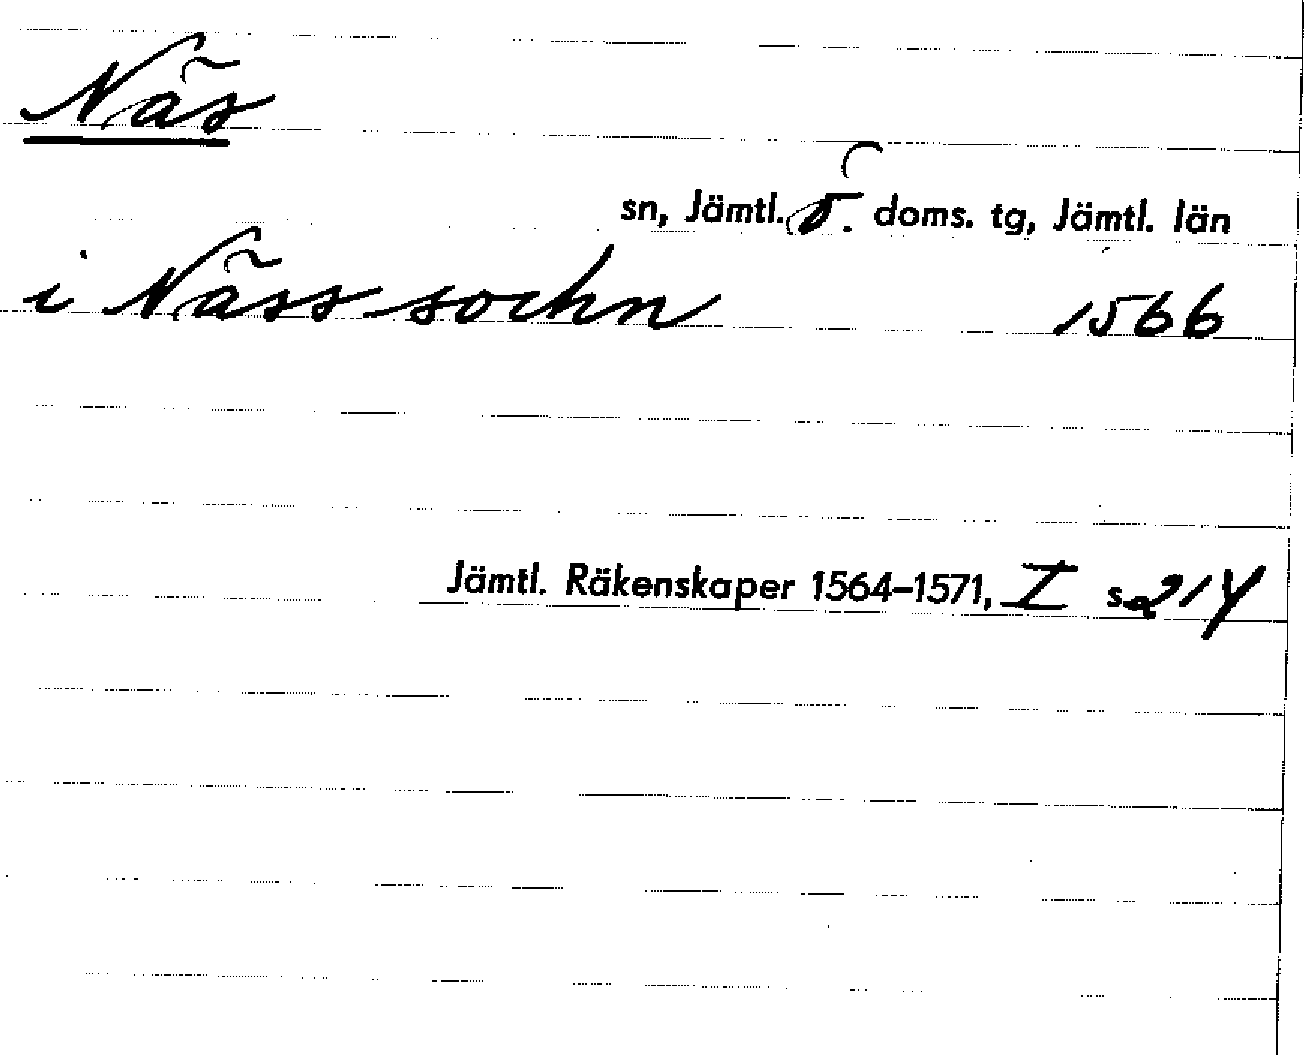 Näs
sn, Jämtl. ö. doms. tg, Jämtl. län
i Näss sochn 1566
Jämtl. Räkenskaper 1564–1571, I s. 214